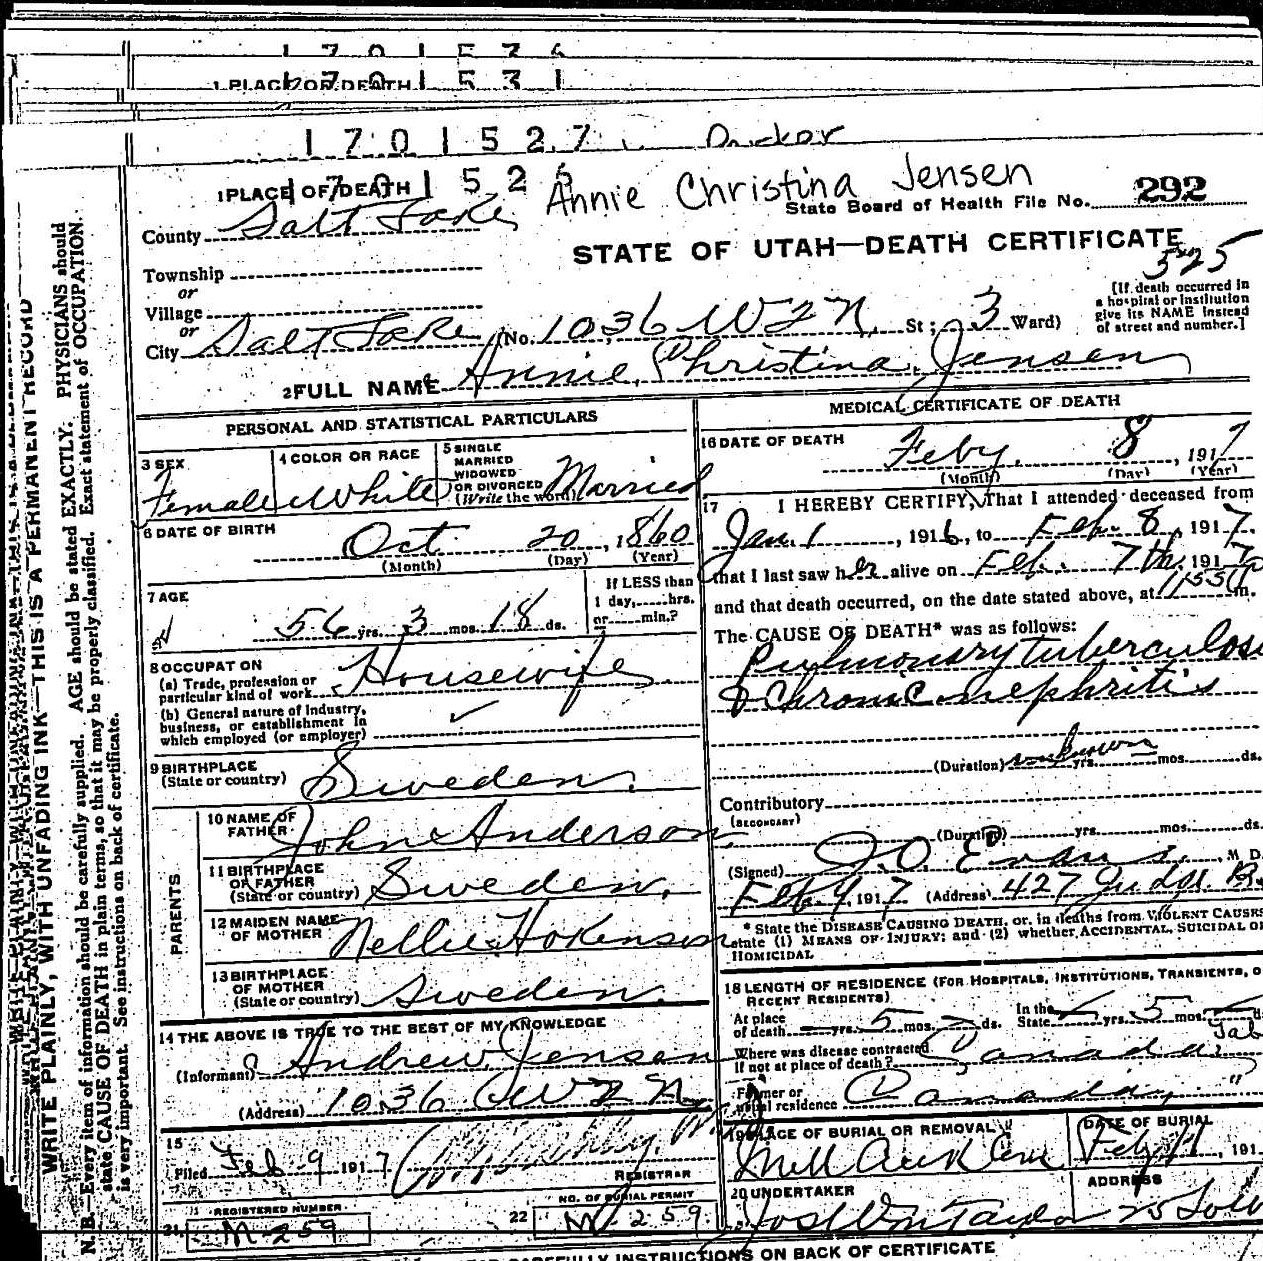 1 7 0 1 5 7 6
1 PLACE OF DEATH 1 7 0 1 5 3 1
1 7 0 1 5 2 7
1 PLACE OF DEATH 1 7 0 1 5 2 6
Annie Christina Jensen
State Board of Health File No. 292
County Salt Lake
STATE OF UTAH—DEATH CERTIFICATE
525
Township
or
Village
or
City Salt Lake (No. 1036 W 2 N. St; 3 Ward)
[If death occurred in
a hospital or institution
give its NAME instead
of street and number.]
2 FULL NAME Annie Christina Jensen
PERSONAL AND STATISTICAL PARTICULARS
3 SEX
Female
4 COLOR OR RACE
White
5 SINGLE
MARRIED
WIDOWED
OR DIVORCED
(Write the word)
Married
6 DATE OF BIRTH
Oct 20, 1860
(Month) (Day) (Year)
7 AGE
56 yrs. 3 mos. 18 ds.
If LESS than
1 day,......hrs.
or......min.?
8 OCCUPATION
(a) Trade, profession or
particular kind of work
Housewife
(b) General nature of industry,
business, or establishment in
which employed (or employer)
9 BIRTHPLACE
(State or country)
Sweden.
PARENTS
10 NAME OF
FATHER
John Anderson
11 BIRTHPLACE
OF FATHER
(State or country)
Sweden.
12 MAIDEN NAME
OF MOTHER
Nellie Hokenson
13 BIRTHPLACE
OF MOTHER
(State or country)
Sweden.
14 THE ABOVE IS TRUE TO THE BEST OF MY KNOWLEDGE
(Informant) Andrew Jensen
(Address) 1036 W 2 N.
15
Filed Feb 9 1917
REGISTRAR
REGISTERED NUMBER
21 M-259
NO. OF BURIAL PERMIT
22 M-259
MEDICAL CERTIFICATE OF DEATH
16 DATE OF DEATH
Feby. 8, 1917
(Month) (Day) (Year)
17 I HEREBY CERTIFY, That I attended deceased from
Jan. 1, 1916, to Feb. 8, 1917.
that I last saw her alive on Feb. 7th. 1917
and that death occurred, on the date stated above, at m.
The CAUSE OF DEATH* was as follows:
Pulmonary tuberculosi
& Chronic nephritis
(Duration) unknown yrs. mos. ds.
Contributory
(SECONDARY)
(Duration) yrs. mos. ds.
(Signed) J.O. Evans, M D.
Feb. 9, 1917 (Address) 427 Judge B
* State the DISEASE CAUSING DEATH, or, in deaths from VIOLENT CAUSES
state (1) MEANS OF INJURY; and (2) whether ACCIDENTAL, SUICIDAL OR
HOMICIDAL
18 LENGTH OF RESIDENCE (FOR HOSPITALS, INSTITUTIONS, TRANSIENTS, O
RECENT RESIDENTS)
At place
of death — yrs. 5 mos. — ds.
In the
State yrs. 5 mos. d
Where was disease contracted
If not at place of death? Canada.
Former or
usual residence Canada, "
19 PLACE OF BURIAL OR REMOVAL
Mill Creek Cem
DATE OF BURIAL
Feby 11, 191
20 UNDERTAKER
Jos Wm Taylor
ADDRESS
CAREFULLY INSTRUCTIONS ON BACK OF CERTIFICATE
WRITE PLAINLY, WITH UNFADING INK—THIS IS A PERMANENT RECORD
N. B.—Every item of information should be carefully supplied. AGE should be stated EXACTLY. PHYSICIANS should
state CAUSE OF DEATH in plain terms, so that it may be properly classified. Exact statement of OCCUPATION
is very important. See instructions on back of certificate.